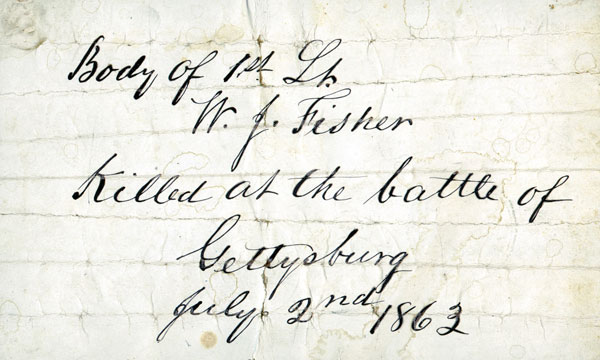 Body of 1st Lt.
W. J. Fisher
Killed at the battle of
Gettysburg
July. 2nd 1863